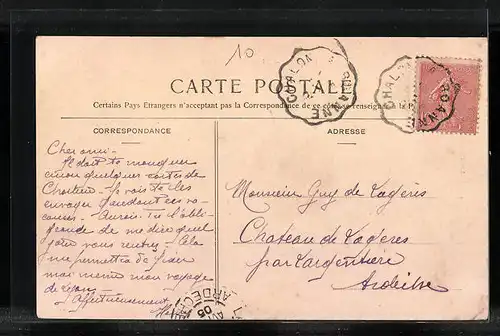 10
CARTE POSTALE
Certains Pays Etrangers n'acceptent pas la Correspondance de ce côté se renseigner à la P
CORRESPONDANCE
ADRESSE
CHALON A ROANNE
CHALON A ROANNE
Cher ami -
Il doit te manquer
encor quelques cartes de
- Je vais te les
envoyer pendant ces va-
cances - Aurais-tu l'obli-
geance de me dire quel
jour vous rentrez - Cela
me permettra de fixer
moi même mon voyage
de
Affectueusement
Monsieur Guy de Lagères
Chateau de Lagères
par Largentière
Ardèche
05
ARDECHE